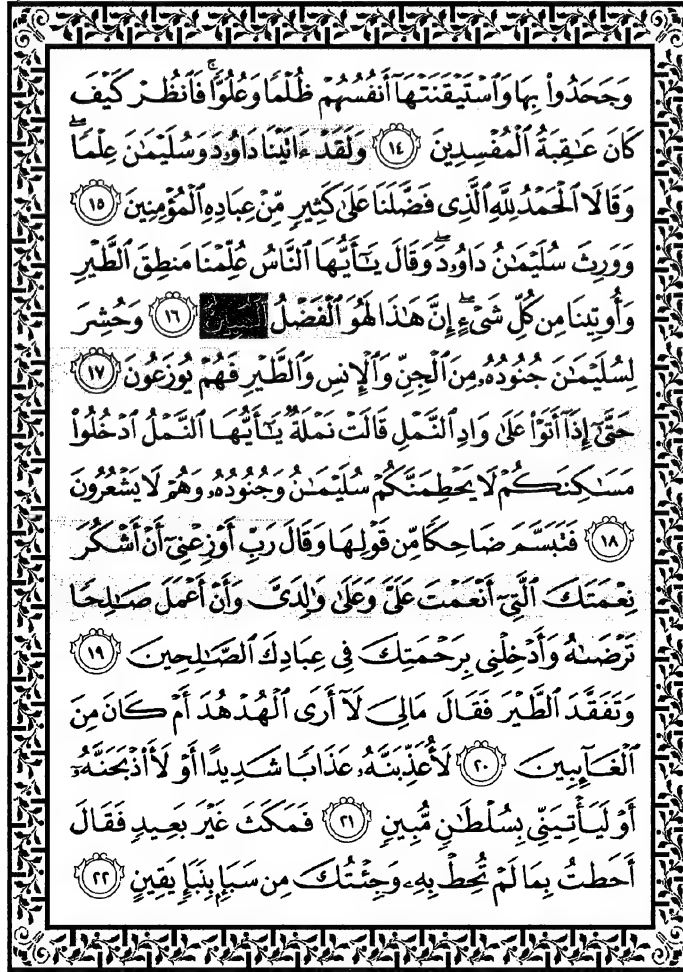 وَجَحَدُوا۟ بِهَا وَٱسْتَيْقَنَتْهَآ أَنفُسُهُمْ ظُلْمًا وَعُلُوًّا ۚ فَٱنظُرْ كَيْفَ
كَانَ عَـٰقِبَةُ ٱلْمُفْسِدِينَ ١٤ وَلَقَدْ ءَاتَيْنَا دَاوُۥدَ وَسُلَيْمَـٰنَ عِلْمًا ۖ
وَقَالَا ٱلْحَمْدُ لِلَّهِ ٱلَّذِى فَضَّلَنَا عَلَىٰ كَثِيرٍ مِّنْ عِبَادِهِ ٱلْمُؤْمِنِينَ ١٥
وَوَرِثَ سُلَيْمَـٰنُ دَاوُۥدَ ۖ وَقَالَ يَـٰٓأَيُّهَا ٱلنَّاسُ عُلِّمْنَا مَنطِقَ ٱلطَّيْرِ
وَأُوتِينَا مِن كُلِّ شَىْءٍ ۖ إِنَّ هَـٰذَا لَهُوَ ٱلْفَضْلُ ١٦ وَحُشِرَ
لِسُلَيْمَـٰنَ جُنُودُهُۥ مِنَ ٱلْجِنِّ وَٱلْإِنسِ وَٱلطَّيْرِ فَهُمْ يُوزَعُونَ ١٧
حَتَّىٰٓ إِذَآ أَتَوْا۟ عَلَىٰ وَادِ ٱلنَّمْلِ قَالَتْ نَمْلَةٌ يَـٰٓأَيُّهَا ٱلنَّمْلُ ٱدْخُلُوا۟
مَسَـٰكِنَكُمْ لَا يَحْطِمَنَّكُمْ سُلَيْمَـٰنُ وَجُنُودُهُۥ وَهُمْ لَا يَشْعُرُونَ
١٨ فَتَبَسَّمَ ضَاحِكًا مِّن قَوْلِهَا وَقَالَ رَبِّ أَوْزِعْنِىٓ أَنْ أَشْكُرَ
نِعْمَتَكَ ٱلَّتِىٓ أَنْعَمْتَ عَلَىَّ وَعَلَىٰ وَٰلِدَىَّ وَأَنْ أَعْمَلَ صَـٰلِحًا
تَرْضَىٰهُ وَأَدْخِلْنِى بِرَحْمَتِكَ فِى عِبَادِكَ ٱلصَّـٰلِحِينَ ١٩
وَتَفَقَّدَ ٱلطَّيْرَ فَقَالَ مَالِىَ لَآ أَرَى ٱلْهُدْهُدَ أَمْ كَانَ مِنَ
ٱلْغَآئِبِينَ ٢٠ لَأُعَذِّبَنَّهُۥ عَذَابًا شَدِيدًا أَوْ لَأَا۟ذْبَحَنَّهُۥٓ
أَوْ لَيَأْتِيَنِّى بِسُلْطَـٰنٍ مُّبِينٍ ٢١ فَمَكَثَ غَيْرَ بَعِيدٍ فَقَالَ
أَحَطتُ بِمَا لَمْ تُحِطْ بِهِۦ وَجِئْتُكَ مِن سَبَإٍۭ بِنَبَإٍ يَقِينٍ ٢٢